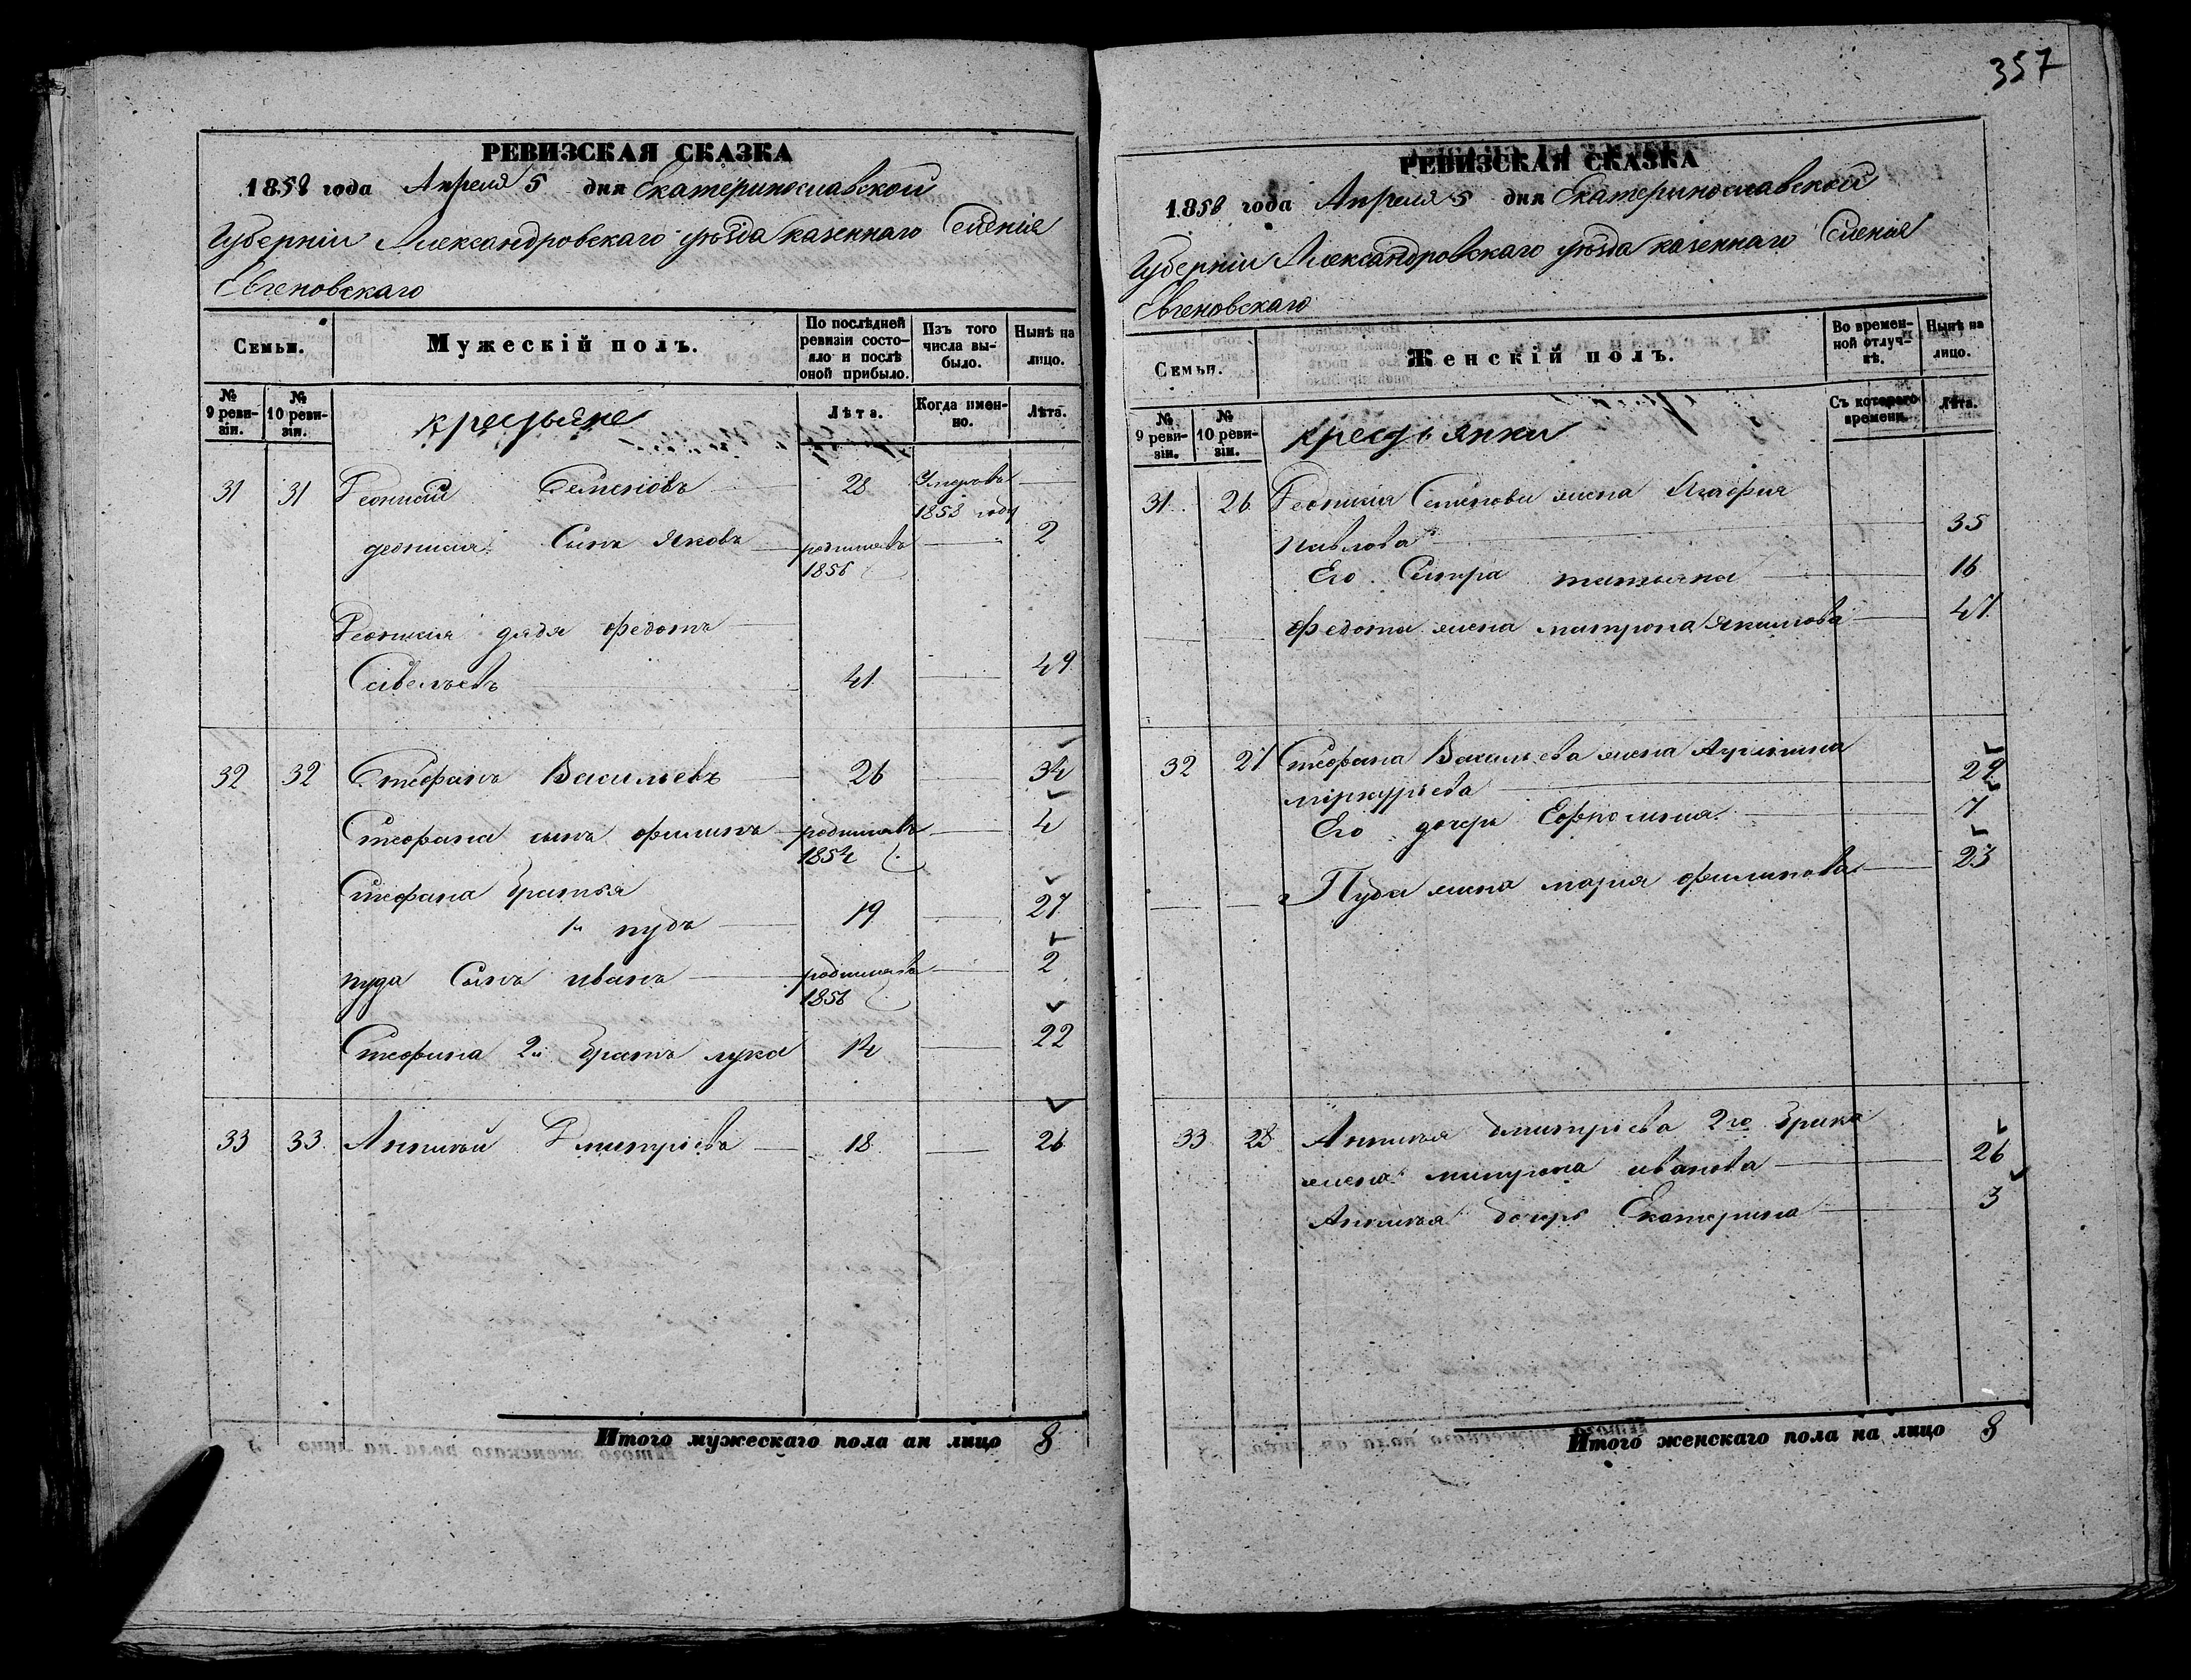 357
РЕВИЗСКАЯ СКАЗКА
1858 года Апреля 5 дня Екатеринославской
Губерніи Александровскаго уѣзда казеннаго Селенія
Евгеновскаго
Семьи.
Мужескій полъ.
По послѣдней
ревизіи состо-
яло и послѣ
оной прибыло.
Изъ того
числа вы-
было.
Нынѣ на
лицо.
№
9 реви-
зіи.
№
10 реви-
зіи.
крестьяне
Лѣта.
Когда имен-
но.
Лѣта.
31 31 Семеновъ 28 Умеръ
1858 году
Сынъ Яковъ родился 2
1856
дядя Федотъ
Савельевъ 41 49
32 32 Стефанъ Васильевъ 26 34
Стефана сынъ Филипъ родился 4
1854
Стефана братья
1й пудъ 19 27
пуда Сынъ иванъ родился 2
1856
Стефана 2й братъ лука 14 22
33 33 Аникѣй Дмитріевъ 18 26
Итого мужескаго пола ан лицо 8
РЕВИЗСКАЯ СКАЗКА
1858 года Апреля 5 дня Екатеринославской
Губерніи Александровскаго уѣзда казеннаго Селенія
Евгеновскаго
Семьи.
Женскій полъ.
Во времен-
ной отлуч-
кѣ.
Нынѣ на
лицо.
№
9 реви-
зіи.
№
10 реви-
зіи.
крестьянки
Съ котораго
времени.
Лѣта.
31 26 Семенова жена Агафия
павлова 35
Его Сестра татьяна 16
Федота жена матрона Якимова 47
32 27 Стефана Васильева жена
меркурьева 29
Его дочерь Ефросиния 7
Пуда жена мария филипова 23
33 28 Аникѣя дмитріева 2го брака
жена матрона иванова 26
Аникѣя дочерь Екатерина 3
Итого женскаго пола на лицо 8